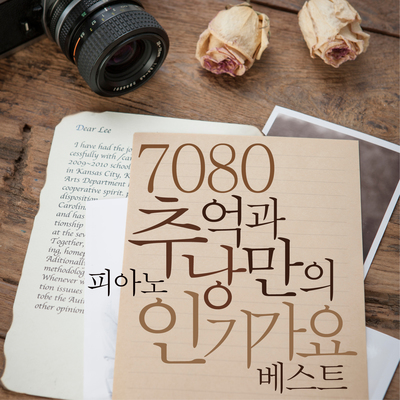 Dear Lee
I have had the jo
cessfully with
2009~2010 school
in Kansas City, K
Arts Department
cooperative spirit.
disposition
Carolin
and hav
tionship
at the se
Together,
ing, homep
Aditionall
methodolog
Whenever w
tion isuues
tobe the Aus
other opinion
7080
추억과
낭만의
피아노
인기가요
베스트